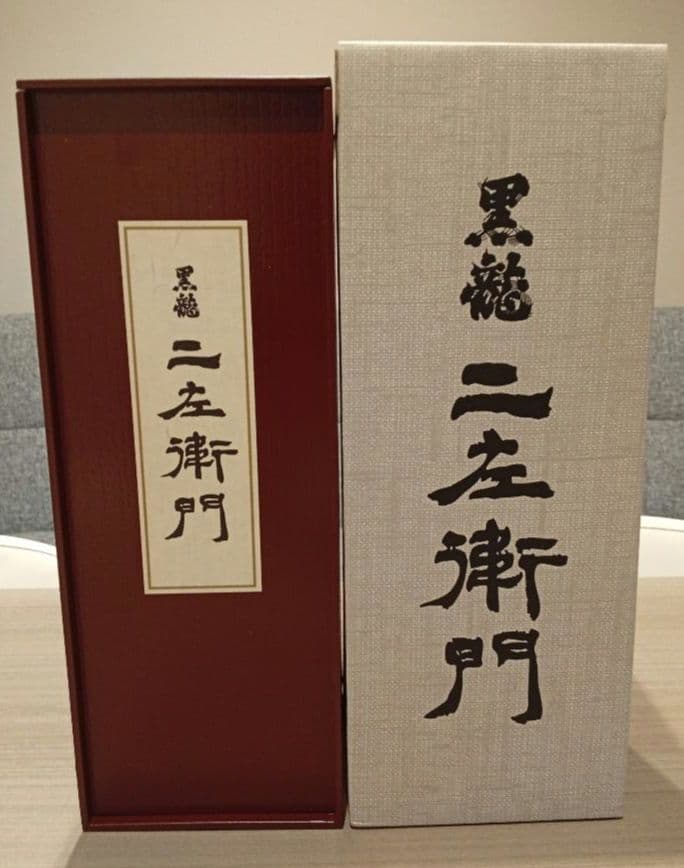 黒龍
二左衛門
黒龍
二左衛門